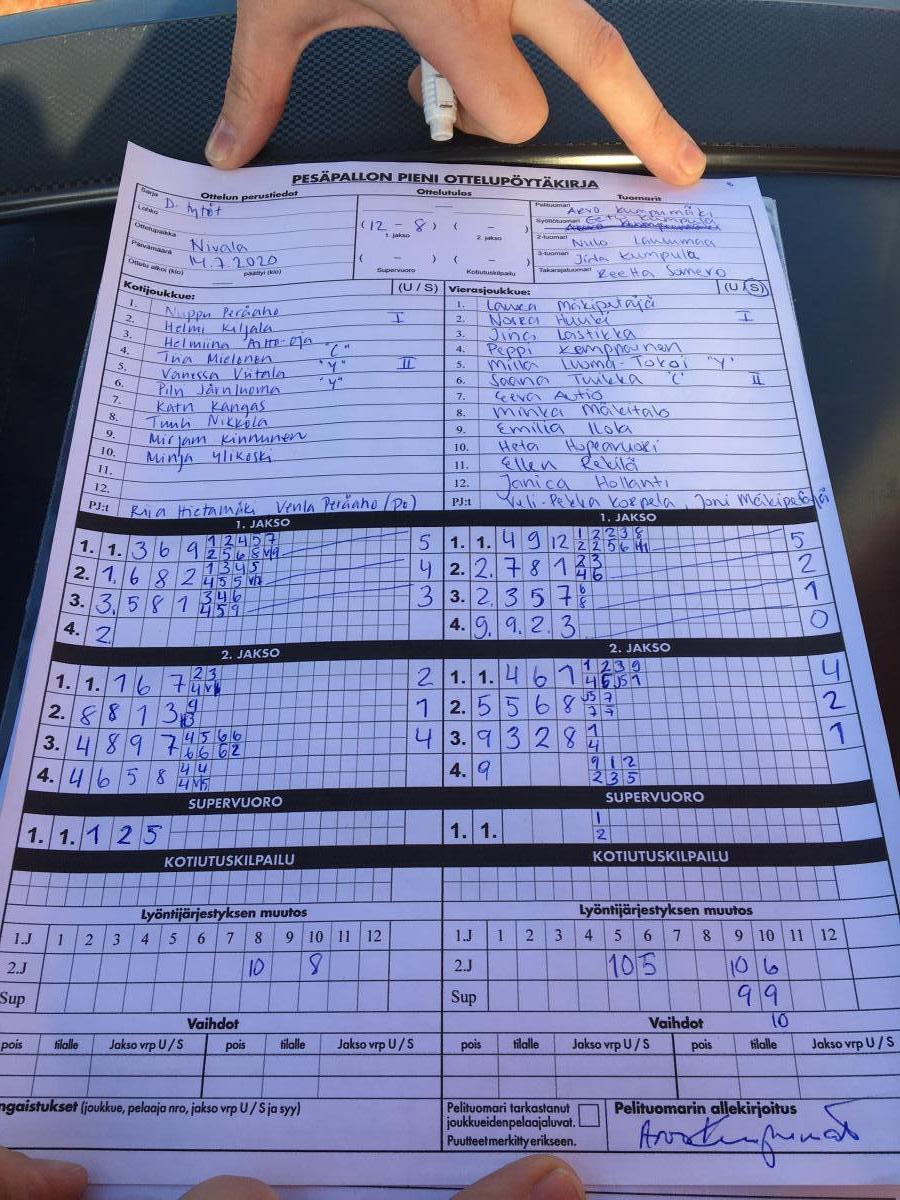 PESÄPALLON PIENI OTTELUPÖYTÄKIRJA
Ottelun perustiedot
Sarja D-tytöt
Lohko
Ottelupaikka Nivala
Päivämäärä 14.7.2020
Ottelu alkoi (klo) päättyi (klo)
Ottelutulos
(12 - 8) ( - )
1. jakso 2. jakso
( - ) ( - )
Supervuoro Kotiutuskilpailu
Tuomarit
Pelituomari Arvo Kumpumäki
Syöttötuomari Eetu Kumpula
2-tuomari Nulo Lauumaa
3-tuomari Jida Kumpula
Takarajatuomari Reetta Somero
Kotijoukkue: (U / S)
1. Nuppu Peräaho
2. Helmi Kiljala I
3. Helmiina Aitto-oja
4. Tina Mielonen "C"
5. Vanessa Viitala "Y" II
6. Pilvi Järviluoma "Y"
7. Katri Kangas
8. Tuuli Nikkola
9. Mirjam Kinnunen
10. Minja Ylikoski
11.
12.
PJ:t Riia Hietamäki Venla Peräaho (Po)
Vierasjoukkue: (U / S)
1. Laura Mäkipetäjä
2. Noora Huuki I
3. Jina Lastikka
4. Peppi Kemppainen
5. Milla Luoma-Tokoi "Y"
6. Saana Tuikka "C" II
7. Eeva Autio
8. Minka Mäkitalo
9. Emilia Ilola
10. Heta Hopeavuori
11. Ellen Rekilä
12. Janica Hollanti
PJ:t Juli-Pekka Korpela, Joni Mäkipetäjä
1. JAKSO
1. 1. 3 6 9 1 2 4 5 7 5
2 5 6 8
2. 1. 6 8 2 1 3 4 5 4
4 5 5
3. 3. 5 8 1 3 4 6 3
4 5 9
4. 2
1. JAKSO
1. 1. 4 9 12 1 2 2 3 8 5
2 2 5 6
2. 2. 7 8 1 2 3 2
4 6
3. 2. 3 5 7 6 1
8
4. 9. 9. 2. 3 0
2. JAKSO
1. 1. 1 6 7 2 3 2
4
2. 8 8 1 3 9 1
3. 4 8 9 7 4 5 6 6 4
6 6 6 2
4. 4 6 5 8 4 4
4
2. JAKSO
1. 1. 4 6 1 1 2 3 9 4
4 6 J5 1
2. 5 5 6 8 J5 7 2
7 7
3. 9 3 2 8 1 1
4
4. 9 9 1 2
2 3 5
SUPERVUORO
1. 1. 1 2 5
SUPERVUORO
1. 1. 1
2
KOTIUTUSKILPAILU
KOTIUTUSKILPAILU
Lyöntijärjestyksen muutos
1.J 1 2 3 4 5 6 7 8 9 10 11 12
2.J 10 8
Sup
Lyöntijärjestyksen muutos
1.J 1 2 3 4 5 6 7 8 9 10 11 12
2.J 10 5 10 6
Sup 9 9
10
Vaihdot
pois tilalle Jakso vrp U / S pois tilalle Jakso vrp U / S
Vaihdot
pois tilalle Jakso vrp U / S pois tilalle Jakso vrp U / S
ngaistukset (joukkue, pelaaja nro, jakso vrp U / S ja syy)
Pelituomari tarkastanut
joukkueidenpelaajaluvat.
Puutteet merkitty erikseen.
Pelituomarin allekirjoitus